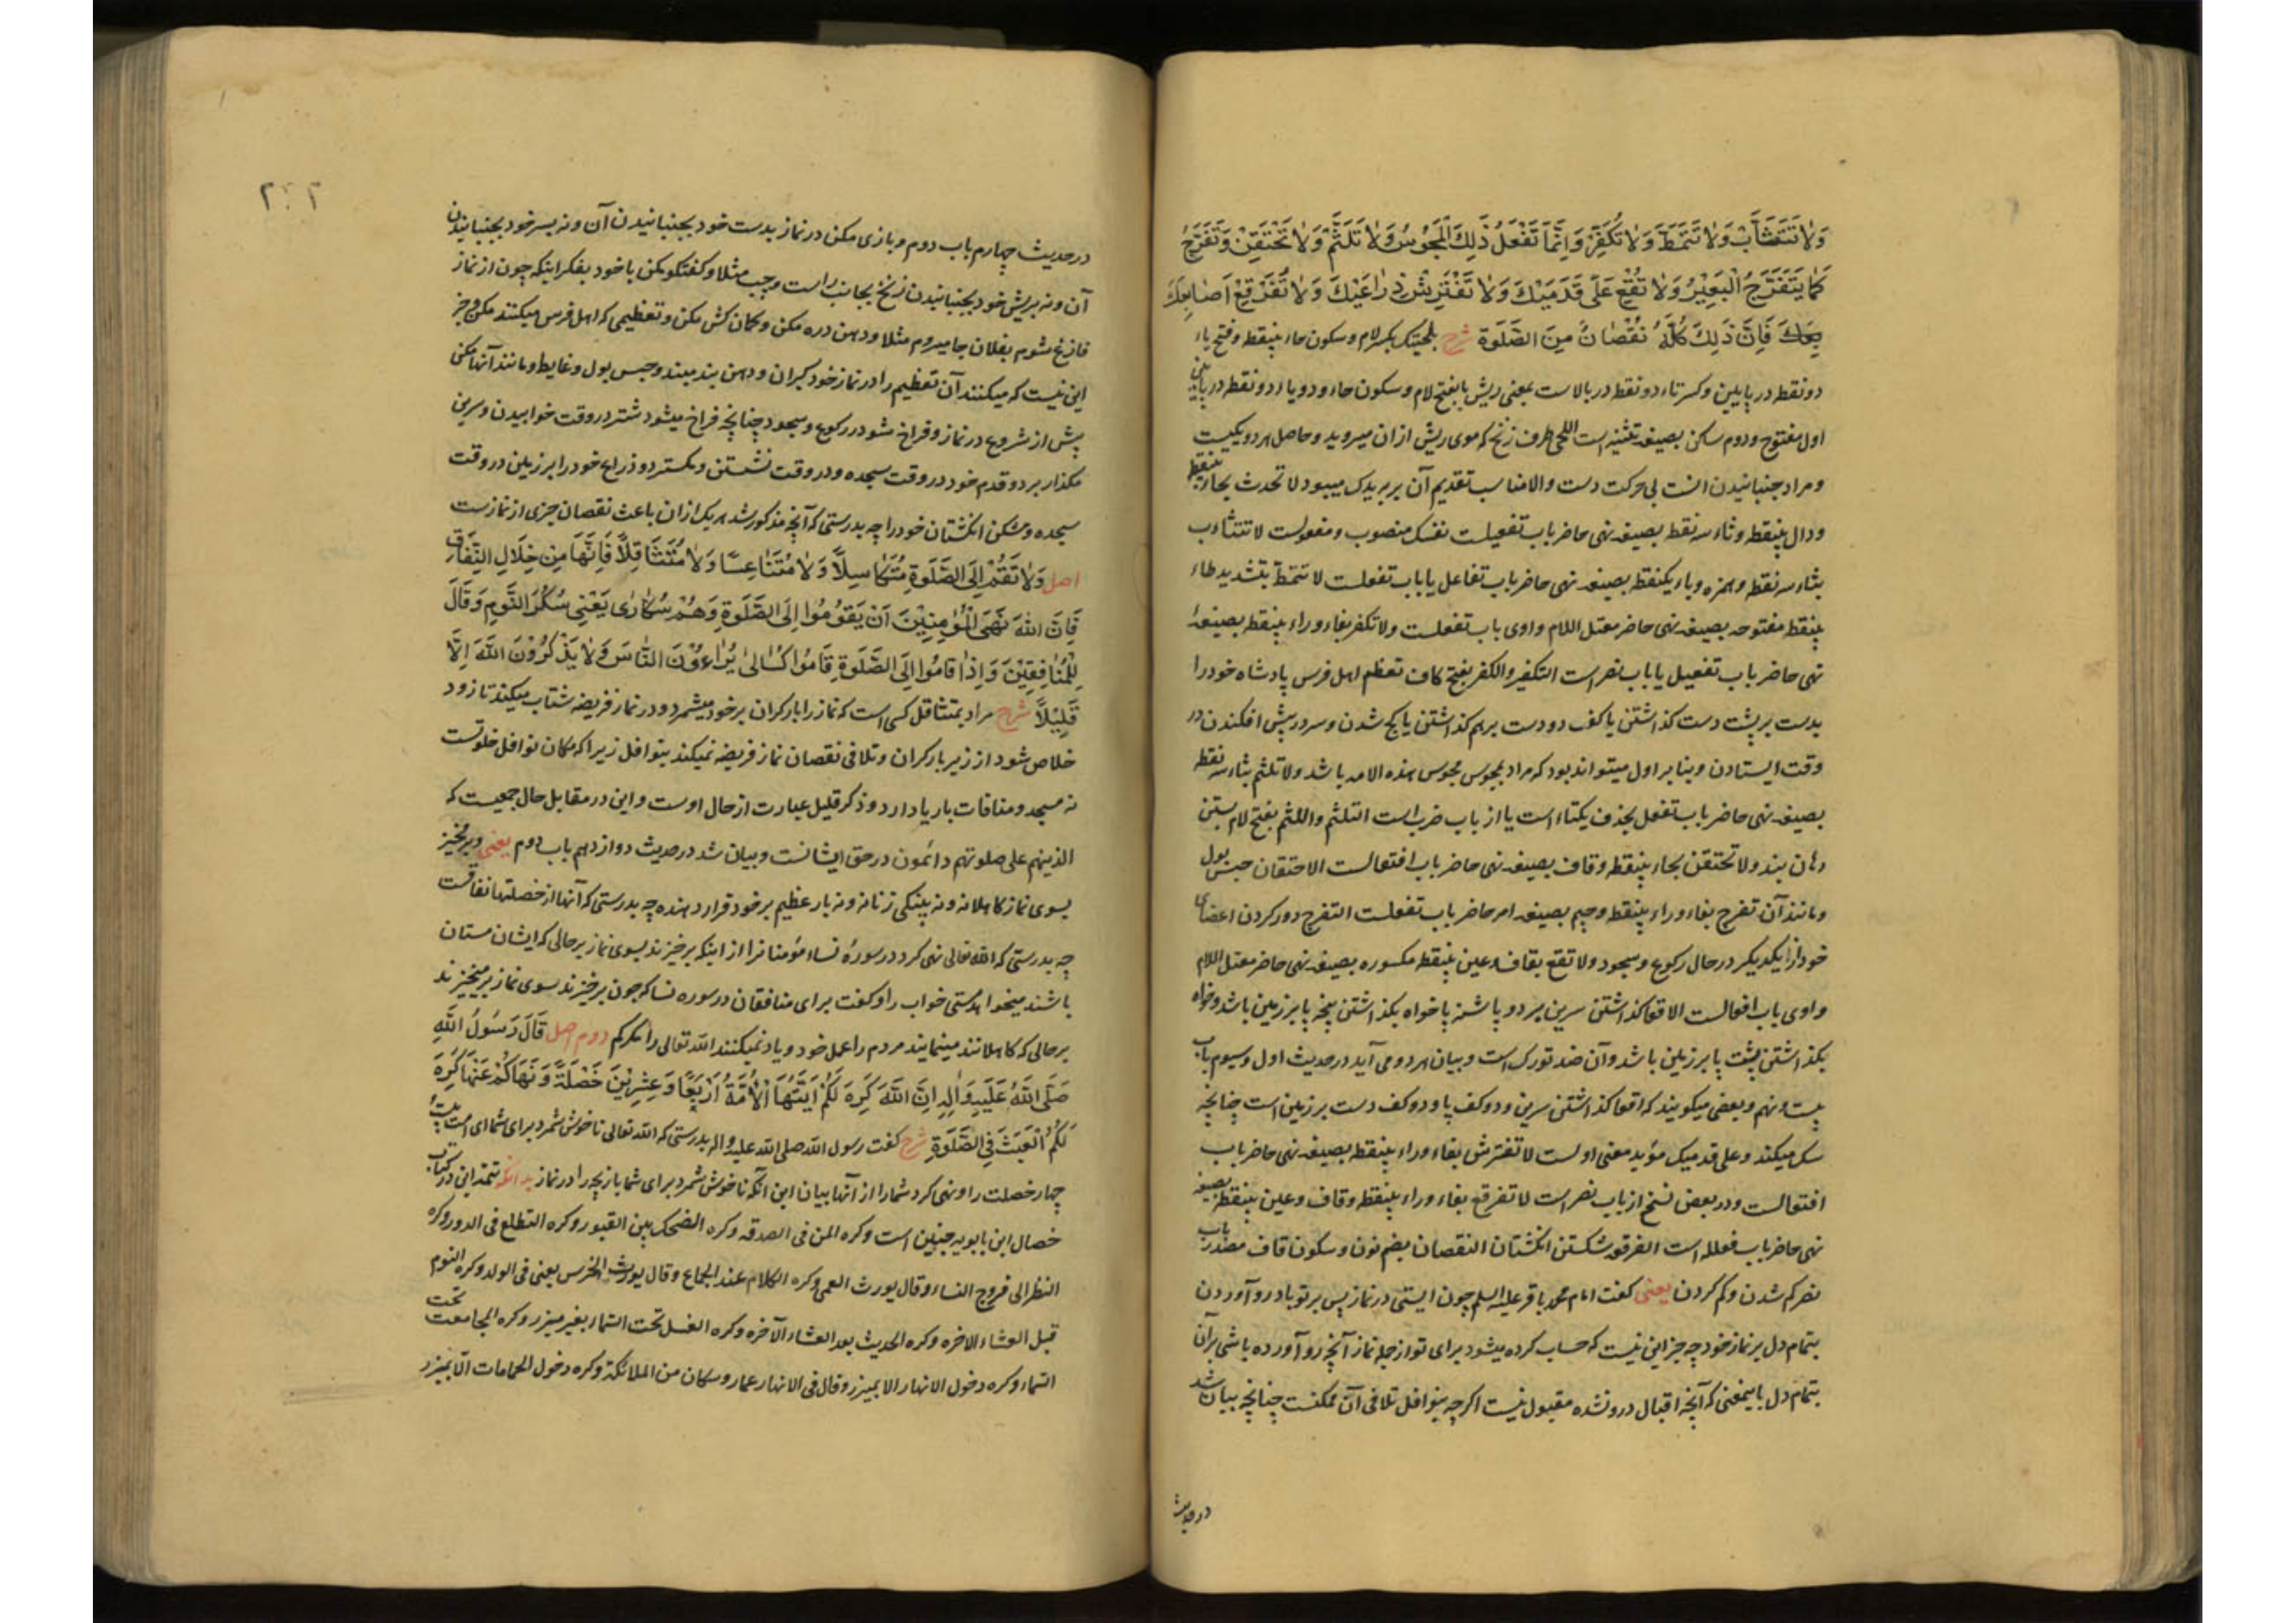 وَلاٰ تَتَثَاَّبْ وَلاٰ تَتَمَطَّ وَلاٰ تُكَفِّرْ وَاِنَّمٰا تَفْعَلُ ذٰلِكَ الْمَجُوسُ وَلاٰ تَلَثَّمْ وَلاٰ تَحْتَقِنْ وَتَفَرَّجْ
كَمٰا يَتَفَرَّجُ الْبَعِيْرُ وَلاٰ تُقْعِ عَلٰى قَدَمَيْكَ وَلاٰ تَفْتَرِشْ ذِرٰاعَيْكَ وَلاٰ تُفَرْقِعْ اَصٰابِعَكَ
فَاِنَّ ذٰلِكَ كُلَّهُ نُقْصٰانٌ مِنَ الصَّلٰوةِ شرح بلحیتک بکسر لام و سکون حاء بینقطه و فتح یاء
دو نقطه در پایین و کسر تاء دو نقطه در بالاست بمعنی ریش یا بفتح لام و سکون حاء و دو یاء دو نقطه در پایین
اول مفتوح و دوم ساکن بصیغه تثنیه است اللحی طرف زنخ که موی ریش ازان میروید و حاصل هر دو یکیست
و مراد جنبانیدن انست بی حرکت دست والا مناسب تقدیم آن بر بیدک میبود لا تحدث بحاء بینقطه
و دال بینقطه و ثاء سه نقطه بصیغه نهی حاضر باب تفعیلست نفسک منصوب و مفعولست لا تتثاءب
بثاء سه نقطه و همزه و باء یکنقطه بصیغه نهی حاضر باب تفاعل یا باب تفعلست لا تتمط بتشدید طاء
بینقطه مفتوحه بصیغه نهی حاضر معتل اللام واوی باب تفعلست ولا تکفر بفاء و راء بینقطه بصیغهٔ
نهی حاضر باب تفعیل یا باب نصر است التکفیر والکفر بفتح کاف تعظیم اهل فرس پادشاه خود را
بدست بر پشت دست گذاشتن یا کف دو دست بر هم گذاشتن یا کج شدن و سر در پیش افکندن در
وقت ایستادن و بنا بر اول میتواند بود که مراد بمجوس مجوس هذه الامه باشد ولا تلثم بثاء سه نقطه
بصیغه نهی حاضر باب تفعل بحذف یکتاء است یا از باب ضرب است التلثم واللثم بفتح لام بستن
دهان بند ولا تحتقن بحاء بینقطه و قاف بصیغه نهی حاضر باب افتعالست الاحتقان حبس بول
و مانند آن تفرج بفاء و راء بینقطه و جیم بصیغه امر حاضر باب تفعلست التفرج دور کردن اعضای
خود از یکدیگر در حال رکوع و سجود ولا تقع بقاف و عین بینقطه مکسوره بصیغه نهی حاضر معتل اللام
واوی باب افعالست الاقعا گذاشتن سرین بر دو پاشنه پا خواه بگذاشتن پنجه پا بر زمین باشد و خواه
بگذاشتن پشت پا بر زمین باشد و آن ضد تورک است و بیان هر دو می آید در حدیث اول و سیوم باب
بیست و نهم و بعضی میگویند که اقعا گذاشتن سرین و دو کف پا و دو کف دست بر زمین است چنانچه
سک میکند و علی قدمیک مؤید معنی اولست لا تفترش بفاء و راء بینقطه بصیغه نهی حاضر باب
افتعالست و در بعض نسخ از باب نصر است لا تفرقع بفاء و راء بینقطه و قاف و عین بینقطه بصیغه
نهی حاضر باب فعلله است الفرقعه شکستن انگشتان النقصان بضم نون و سکون قاف مصدر باب
نصر کم شدن و کم کردن یعنی گفت امام محمد باقر علیه السلم چون ایستی در نماز پس بر تو باد رو آوردن
بتمام دل بر نماز خود چه جز این نیست که حساب کرده میشود برای تو از جمله نماز آنچه رو آورده باشی بر آن
بتمام دل باینمعنی که آنچه اقبال درو نشده مقبول نیست اگر چه بنوافل تلافی آن ممکنست چنانچه بیان شد
در حدیث
در حدیث چهارم باب دوم و بازی مکن در نماز بدست خود بجنبانیدن آن و نه بسر خود بجنبانیدن
آن و نه بریش خود بجنبانیدن زنخ بجانب راست و چپ مثلا و گفتگو مکن با خود بفکر اینکه چون از نماز
فارغ شوم بفلان جا میروم مثلا و دهن دره مکن و کمان کش مکن و تعظیمی که اهل فرس میکنند مکن و جز
این نیست که میکنند آن تعظیم را در نماز خود گبران و دهن بند مبند و حبس بول و غایط و مانند آنها مکن
پیش از شروع در نماز و فراخ شو در رکوع و سجود چنانچه فراخ میشود شتر در وقت خوابیدن و سرین
مگذار بر دو قدم خود در وقت سجده و در وقت نشستن و مگستر دو ذراع خود را بر زمین در وقت
سجده و مشکن انگشتان خود را چه بدرستی که آنچه مذکور شد هر یک ازان باعث نقصان جزی از نماز است
اصل وَلاٰ تَقُمْ اِلَى الصَّلٰوةِ مُتَكٰاسِلاً وَلاٰ مُتَنٰاعِسًا وَلاٰ مُتَثٰاقِلاً فَاِنَّهٰا مِنْ خِلاٰلِ النِّفٰاقِ
فَاِنَّ اللّٰهَ نَهَى الْمُؤْمِنِيْنَ اَنْ يَقُوْمُوا اِلَى الصَّلٰوةِ وَهُمْ سُكٰارٰى يَعْنِي سُكْرَ النَّوْمِ وَقٰالَ
لِلْمُنٰافِقِيْنَ وَاِذٰا قٰامُوا اِلَى الصَّلٰوةِ قٰامُوا كُسٰالىٰ يُرٰاءُوْنَ النّٰاسَ وَلاٰ يَذْكُرُوْنَ اللّٰهَ اِلاَّ
قَلِيْلاً شرح مراد بمتثاقل کسی است که نماز را بار گران بر خود میشمرد و در نماز فریضه شتاب میکند تا زود
خلاص شود از زیر بار گران و تلافی نقصان نماز فریضه نمیکند بنوافل زیرا که مکان نوافل خلوتست
نه مسجد و منافات با ریا دارد و ذکر قلیل عبارت از حال اوست و این در مقابل حال جمعیست که
الذینهم علی صلوتهم دائمون در حق ایشانست و بیان شد در حدیث دوازدهم باب دوم یعنی و بر مخیز
بسوی نماز کاهلانه و نه پینکی زنانه و نه بار عظیم بر خود قرار دهنده چه بدرستی که آنها از خصلتها نفاقست
چه بدرستی که الله تعالی نهی کرد در سورهٔ نساء مؤمنانرا از اینکه برخیزند بسوی نماز بر حالی که ایشان مستان
باشند میخواهد مستی خواب را و گفت برای منافقان در سوره نسا که چون برخیزند سوی نماز بر میخیزند
بر حالی که کاهلانند مینمایند مردم را عمل خود و یاد نمیکنند الله تعالی را مگر کم دوم اصل قٰالَ رَسُولُ اللّٰهِ
صَلَّى اللّٰهُ عَلَيْهِ وَاٰلِهِ اِنَّ اللّٰهَ كَرِهَ لَكُمْ اَيَّتُهَا الْاُمَّةُ اَرْبَعًا وَعِشْرِيْنَ خَصْلَةً وَنَهٰاكُمْ عَنْهٰا كَرِهَ
لَكُمُ الْعَبَثَ فِي الصَّلٰوةِ شرح گفت رسول الله صلی الله علیه و اله بدرستی که الله تعالی ناخوش شمرد برای شما ای امت بیست
چهار خصلت را و نهی کرد شما را از آنها بیان این آنکه ناخوش شمرد برای شما بازیچه را در نماز بدانکه تتمه این در کتاب
خصال ابن بابویه چنین است وکره المن فی الصدقه وکره الضحک بین القبور وکره التطلع فی الدور وکره
النظر الی فروج النساء وقال یورث العمی وکره الکلام عند الجماع وقال یورث الخرس یعنی فی الولد وکره النوم
قبل العشاء الاخره وکره الحدیث بعد العشاء الآخره وکره الغسل تحت السماء بغیر میزر وکره المجامعت تحت
السماء وکره دخول الانهار الا بمیزر وقال فی الانهار عمار وسکان من الملائکة وکره دخول الحمامات الّا بمیزر